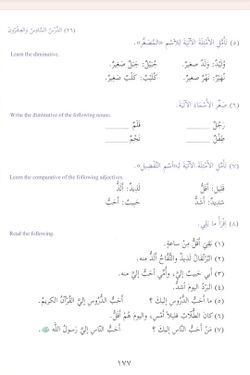 (٢٦) الدَّرْسُ السَّادِسُ والعِشْرُونَ
(٥) تَأَمَّلِ الأَمْثِلَةَ الآتِيَةَ لِلاِسْمِ «المُصَغَّرِ».
Learn the diminutive.
وُلَيْدٌ: وَلَدٌ صغيرٌ. جُبَيْلٌ: جَبَلٌ صَغِيرٌ.
نُهَيْرٌ: نَهْرٌ صغيرٌ. كُلَيْبٌ: كَلْبٌ صَغِيرٌ.
(٦) صَغِّرِ الأَسْمَاءَ الآتِيَةَ.
Write the diminutive of the following nouns.
رَجُلٌ قَلَمٌ
طِفْلٌ نَجْمٌ
(٧) تَأَمَّلِ الأَمْثِلَةَ الآتِيَةَ لِـ«اسْمِ التَّفْضِيلِ».
Learn the comparative of the following adjectives.
قَلِيل: أَقَلُّ لَذِيذٌ: أَلَذُّ
شَدِيدٌ: أَشَدُّ حَبِيبٌ: أَحَبُّ
(٨) اقْرَأْ مَا يَلِي.
Read the following.
(١) بَقِيَ أَقَلُّ مِنْ سَاعَةٍ.
(٢) البُرْتُقَالُ لَذِيذٌ والتُّفَّاحُ أَلَذُّ منه.
(٣) أبي حَبِيبٌ إِلَيَّ، وأُمِّي أَحَبُّ إِلَيَّ منه.
(٤) البَرْدُ اليَوْمَ أَشَدُّ.
(٥) ما أَحَبُّ الدُّرُوسِ إِلَيكَ ؟ أَحَبُّ الدُّرُوسِ إِلَيَّ القُرْآنُ الكريمُ.
(٦) كَانَ الطُّلَّابُ قَلِيلاً أَمْسِ، واليومَ هُمْ أَقَلُّ.
(٧) مَنْ أَحَبُّ النَّاسِ إِلَيكَ ؟ أَحَبُّ النَّاسِ إِلَيَّ رَسُولُ اللَّهِ ﷺ.
١٧٧